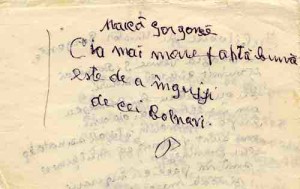 Marcă Gorgonă
Cia mai mare faptă bună
este de a îngriji
de cei Bolnavi.